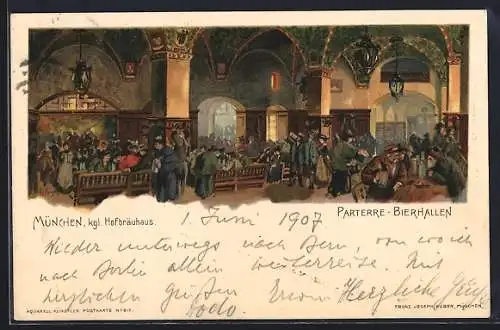 MÜNCHEN, kgl. Hofbräuhaus.
PARTERRE-BIERHALLEN
1. Juni 1907
Wieder unterwegs nach Bern, von wo ich
nach Berlin allein weiterreise. Mit
herzlichen Grüßen
Herzliche Grüße
Dodo.
AQUARELL-KÜNSTLER POSTKARTE
FRANZ JOSEPH HUBER, MÜNCHEN.